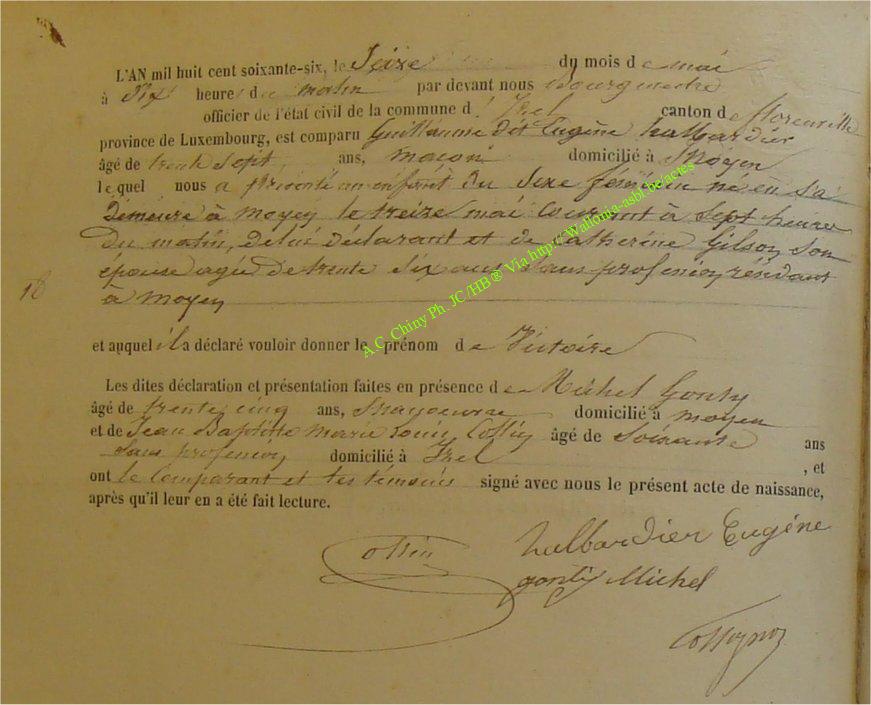 L'AN mil huit cent soixante-six, le Seize du mois de mai
à Dix heures du matin par devant nous Bourgmestre
officier de l'état civil de la commune d'Izel canton de florenville
province de Luxembourg, est comparu Guillaume dit Eugène halbardier
âgé de trente sept ans, maçon domicilié à Moyen
lequel nous a présenté un enfant du sexe féminin né en sa
demeure à moyen le treize mai courant à sept heures
du matin, de lui déclarant et de Catherine Gilson son
épouse agée de trente six ans sans profession résidant
18
à moyen
et auquel il a déclaré vouloir donner le prénom de Victoire
Les dites déclaration et présentation faites en présence de Michel Gonty
âgé de trente cinq ans, domicilié à moyen
et de Jean Baptiste Marie Louis âgé de Soixante ans
sans profession domicilié à Izel , et
ont le Comparant et les témoins signé avec nous le présent acte de naissance,
après qu'il leur en a été fait lecture.
halbardier Eugéne
gonty Michel
A.C. Chiny Ph. JC/HB® Via http://Wallonia-asbl.be/actes